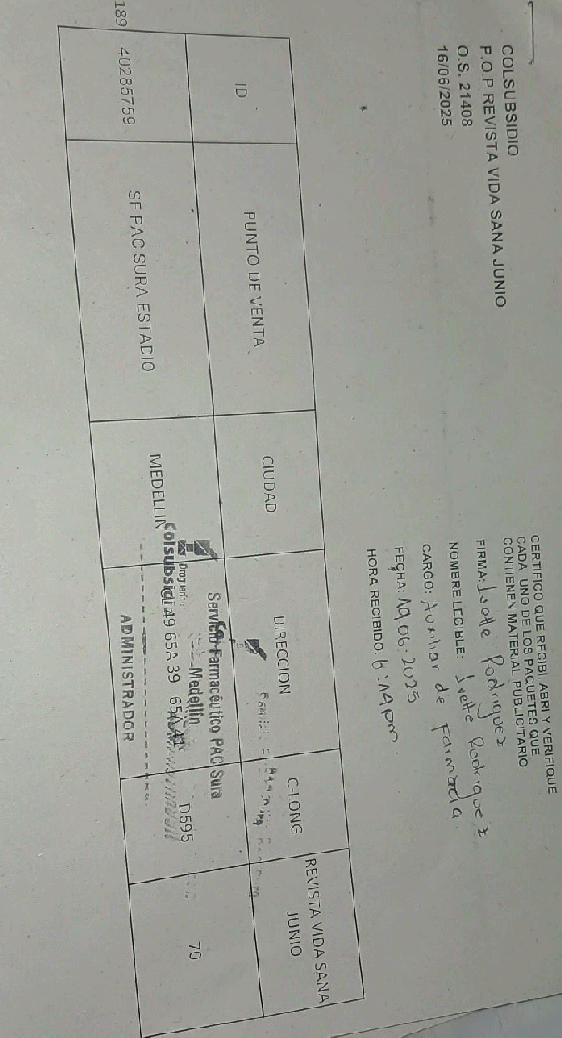 COLSUBSIDIO
P.O.P REVISTA VIDA SANA JUNIO
O.S. 21408
16/06/2025
CERTIFICO QUE RECIBI, ABRI Y VERIFIQUE
CADA UNO DE LOS PAQUETES QUE
CONTIENEN MATERIAL PUBLICITARIO
FIRMA: Ivette Rodriguez
NOMBRE LEGIBLE: Ivette Rodriguez
CARGO: Auxiliar de Farmacia
FECHA: 19.06.2025
HORA RECIBIDO: 6:19pm.
ID PUNTO DE VENTA CIUDAD DIRECCION C.LONG REVISTA VIDA SANA JUNIO
189 40285759 SF PAC SURA ESTADIO MEDELLIN 49 65A 39 D595 70
Servicio Farmacéutico PAC Sura
Medellín
Colsubsidi
ADMINISTRADOR